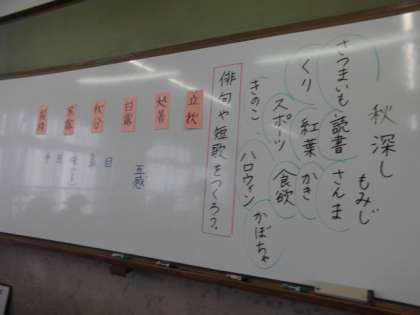 秋深し
もみじ
さつまいも 読書 さんま
くり 紅葉 かき
スポーツ 食欲
きのこ ハロウィン かぼちゃ
俳句や短歌をつくろう。
立秋
処暑
白露
秋分
寒露
霜降
五感
目